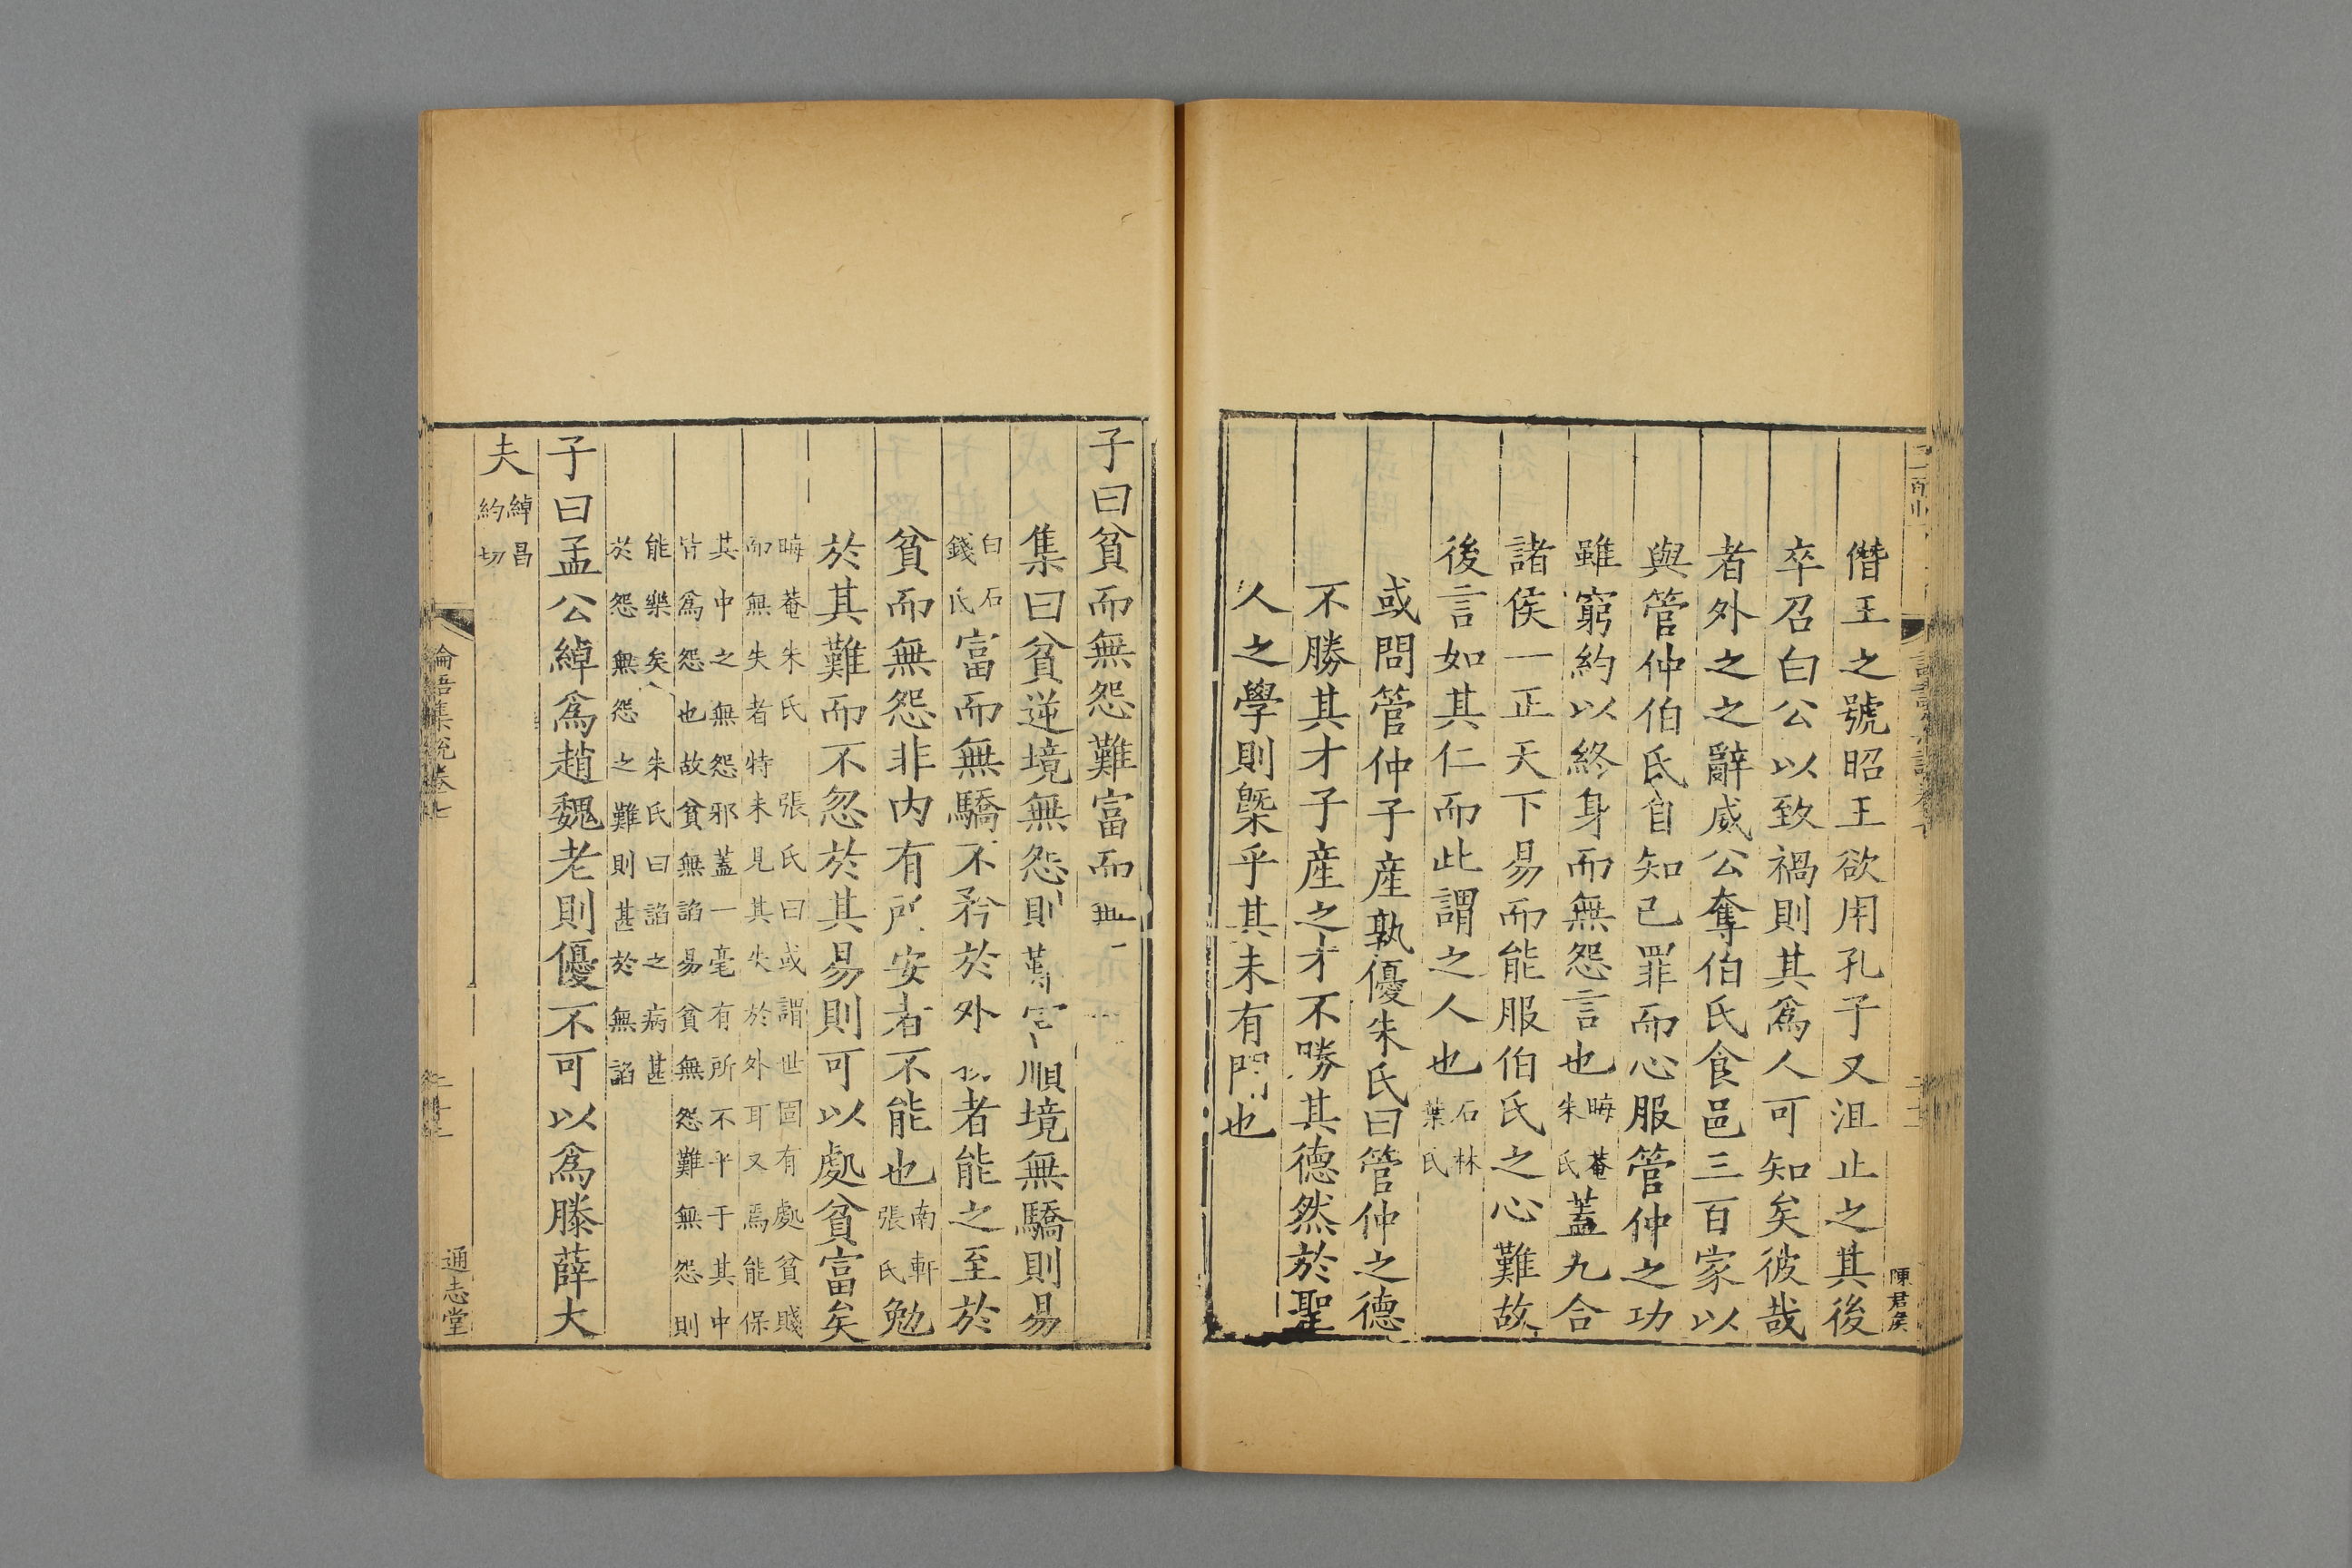 僭王之號昭王欲用孔子又沮止之其後
卒召白公以致禍則其爲人可知矣彼哉
者外之之辭威公奪伯氏食邑三百家以
與管仲伯氏自知己罪而心服管仲之功
雖窮約以終身而無怨言也晦菴朱氏蓋九合
諸侯一正天下易而能服伯氏之心難故
後言如其仁而此謂之人也石林葉氏
或問管仲子產孰優朱氏曰管仲之德
不勝其才子產之才不勝其德然於聖
人之學則槩乎其未有聞也
陳君侯
子曰貧而無怨難富而無
集曰貧逆境無怨則難富順境無驕則易
白石錢氏富而無驕不矜於外者能之至於
貧而無怨非內有所安者不能也南軒張氏勉
於其難而不忽於其易則可以處貧富矣
晦菴朱氏 張氏曰或謂世固有處貧賤
而無失者特未見其失於外耳又焉能保
其中之無怨邪蓋一毫有所不平于其中
皆爲怨也故貧無諂易貧無怨難無怨則
能樂矣 朱氏曰諂之病甚
於怨無怨之難則甚於無諂
子曰孟公綽爲趙魏老則優不可以爲滕薛大
夫綽昌約切
論語集說卷七
通志堂